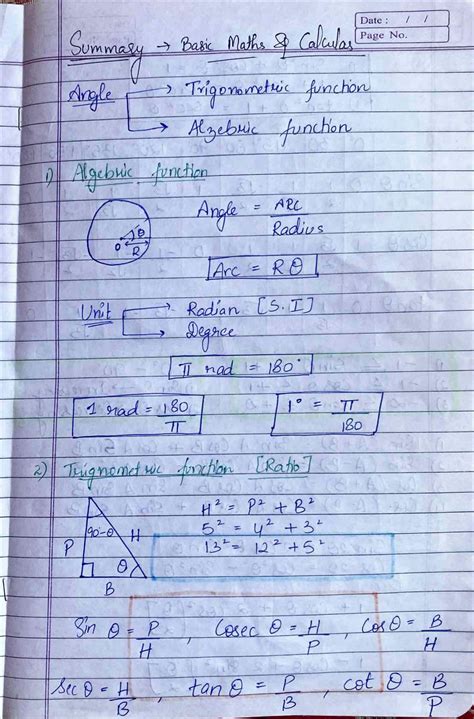 Date : / /
Page No.
Summary → Basic Maths & Calculas
Angle → Trigonometric function
→ Alzebric function
1) Algebric function
Angle = ARC / Radius
θ
O
R
Arc = Rθ
Unit → Radian [S.I]
→ Degree
π rad = 180°
1 rad = 180 / π
1° = π / 180
2) Trignometric function [Ratio]
H² = P² + B²
5² = 4² + 3²
13² = 12² + 5²
90-θ
P
H
θ
B
Sin θ = P / H , Cosec θ = H / P , Cosθ = B / H
Sec θ = H / B , tan θ = P / B , cot θ = B / P